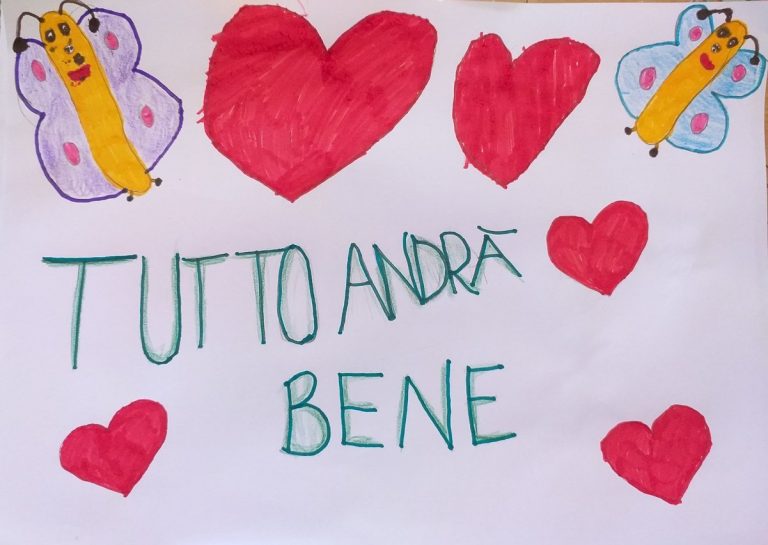 TUTTO ANDRÀ
BENE